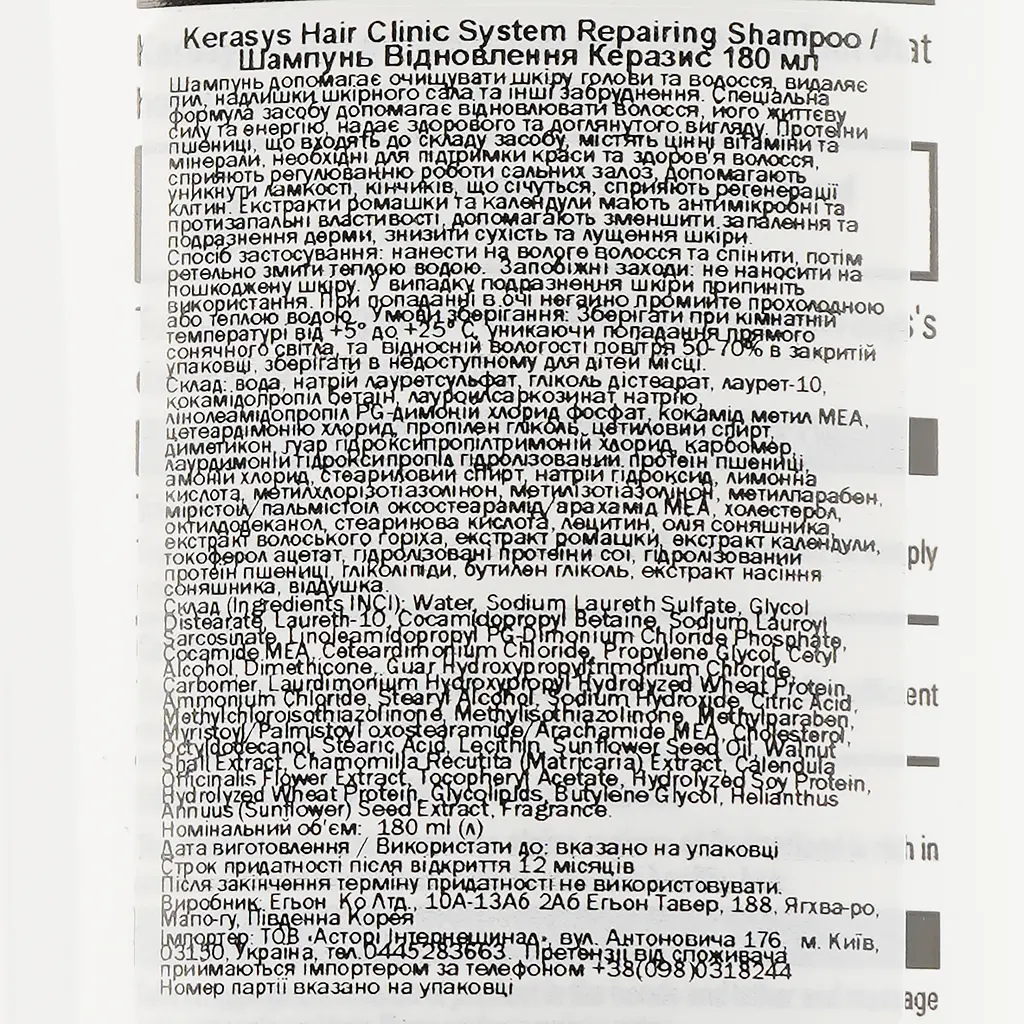 Kerasys Hair Clinic System Repairing Shampoo /
Шампунь Відновлення Керазис 180 мл
Шампунь допомагає очищувати шкіру голови та волосся, видаляє
пил, надлишки шкірного сала та інші забруднення. Спеціальна
формула засобу допомагає відновлювати волосся, його життєву
силу та енергію, надає здорового та доглянутого вигляду. Протеїни
пшениці, що входять до складу засобу, містять цінні вітаміни та
мінерали, необхідні для підтримки краси та здоров'я волосся,
сприяють регулюванню роботи сальних залоз. Допомагають
уникнути ламкості, кінчиків, що січуться, сприяють регенерації
клітин. Екстракти ромашки та календули мають антимікробні та
протизапальні властивості, допомагають зменшити запалення та
подразнення дерми, знизити сухість та лущення шкіри.
Спосіб застосування: нанести на вологе волосся та спінити, потім
ретельно змити теплою водою. Запобіжні заходи: не наносити на
пошкоджену шкіру. У випадку подразнення шкіри припиніть
використання. При попаданні в очі негайно промийте прохолодною
або теплою водою. Умови зберігання: Зберігати при кімнатній
температурі від +5° до +25° С, уникаючи попадання прямого
сонячного світла, та відносній вологості повітря 50-70% в закритій
упаковці, зберігати в недоступному для дітей місці.
Склад: вода, натрій лауретсульфат, гліколь дістеарат, лаурет-10,
кокамідопропіл бетаїн, лауроїлсаркозинат натрію,
лінолеамідопропіл PG-димоній хлорид фосфат, кокамід метил МЕА,
цетеардімонію хлорид, пропілен гліколь, цетиловий спирт,
диметикон, гуар гідроксипропілтримоній хлорид, карбомер,
лаурдимоній гідроксипропіл гідролізований протеїн пшениці,
амоній хлорид, стеариловий спирт, натрій гідроксид, лимонна
кислота, метилхлорізотіазолінон, метилізотіазолінон, метилпарабен,
мірістоїл/пальмістоїл оксостеарамід/арахамід МЕА, холестерол,
октилдодеканол, стеаринова кислота, лецитин, олія соняшника,
екстракт волоського горіха, екстракт ромашки, екстракт календули,
токоферол ацетат, гідролізовані протеїни сої, гідролізований
протеїн пшениці, гліколіпіди, бутилен гліколь, екстракт насіння
соняшника, віддушка.
Склад (Ingredients INCI): Water, Sodium Laureth Sulfate, Glycol
Distearate, Laureth-10, Cocamidopropyl Betaine, Sodium Lauroyl
Sarcosinate, Linoleamidopropyl PG-Dimonium Chloride Phosphate,
Cocamide MEA, Ceteardimonium Chloride, Propylene Glycol, Cetyl
Alcohol, Dimethicone, Guar Hydroxypropyltrimonium Chloride,
Carbomer, Laurdimonium Hydroxypropyl Hydrolyzed Wheat Protein,
Ammonium Chloride, Stearyl Alcohol, Sodium Hydroxide, Citric Acid,
Methylchloroisothiazolinone, Methylisothiazolinone, Methylparaben,
Myristoyl/Palmistoyl oxostearamide/Arachamide MEA, Cholesterol,
Octyldodecanol, Stearic Acid, Lecithin, Sunflower Seed Oil, Walnut
Shall Extract, Chamomilla Recutita (Matricaria) Extract, Calendula
Officinalis Flower Extract, Tocopheryl Acetate, Hydrolyzed Soy Protein,
Hydrolyzed Wheat Protein, Glycolipids, Butylene Glycol, Helianthus
Annuus (Sunflower) Seed Extract, Fragrance.
Номінальний об'єм: 180 ml (л)
Дата виготовлення / Використати до: вказано на упаковці
Строк придатності після відкриття 12 місяців
Після закінчення терміну придатності не використовувати.
Виробник: Егьон Ко Лтд., 10А-13А6 2А6 Егьон Тавер, 188, Ягхва-ро,
Мапо-гу, Південна Корея
Імпортер: ТОВ «Асторі Інтернешинал», вул. Антоновича 176, м. Київ,
03150, Україна, тел.0445283663. Претензії від споживача
приймаються імпортером за телефоном +38(098)0318244
Номер партії вказано на упаковці